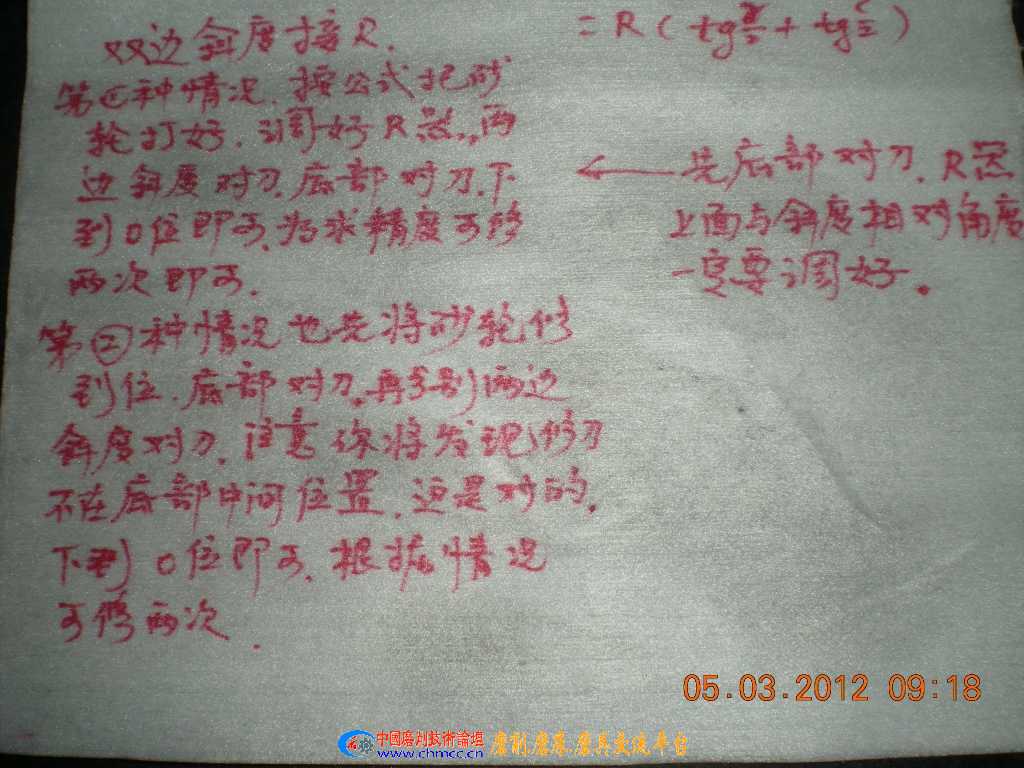 双边斜度接R.
= R ( tg 2 + tg 2 )
第①种情况.按公式把砂
轮打好.调好R总,两
边斜度对刀.底部对刀.下
到0位即可.为求精度可修
两次即可.
← 先底部对刀.R总
上面与斜度相对角度
一定要调好.
第②种情况也先将砂轮修
到位.底部对刀.再分别两边
斜度对刀.注意你将发现修刀
不在底部中间位置.这是对的.
下到0位即可.根据情况
可修两次.
05.03.2012 09:18
中国磨削技術論壇
www.chmcc.cn
磨削.磨床.磨具交流平台